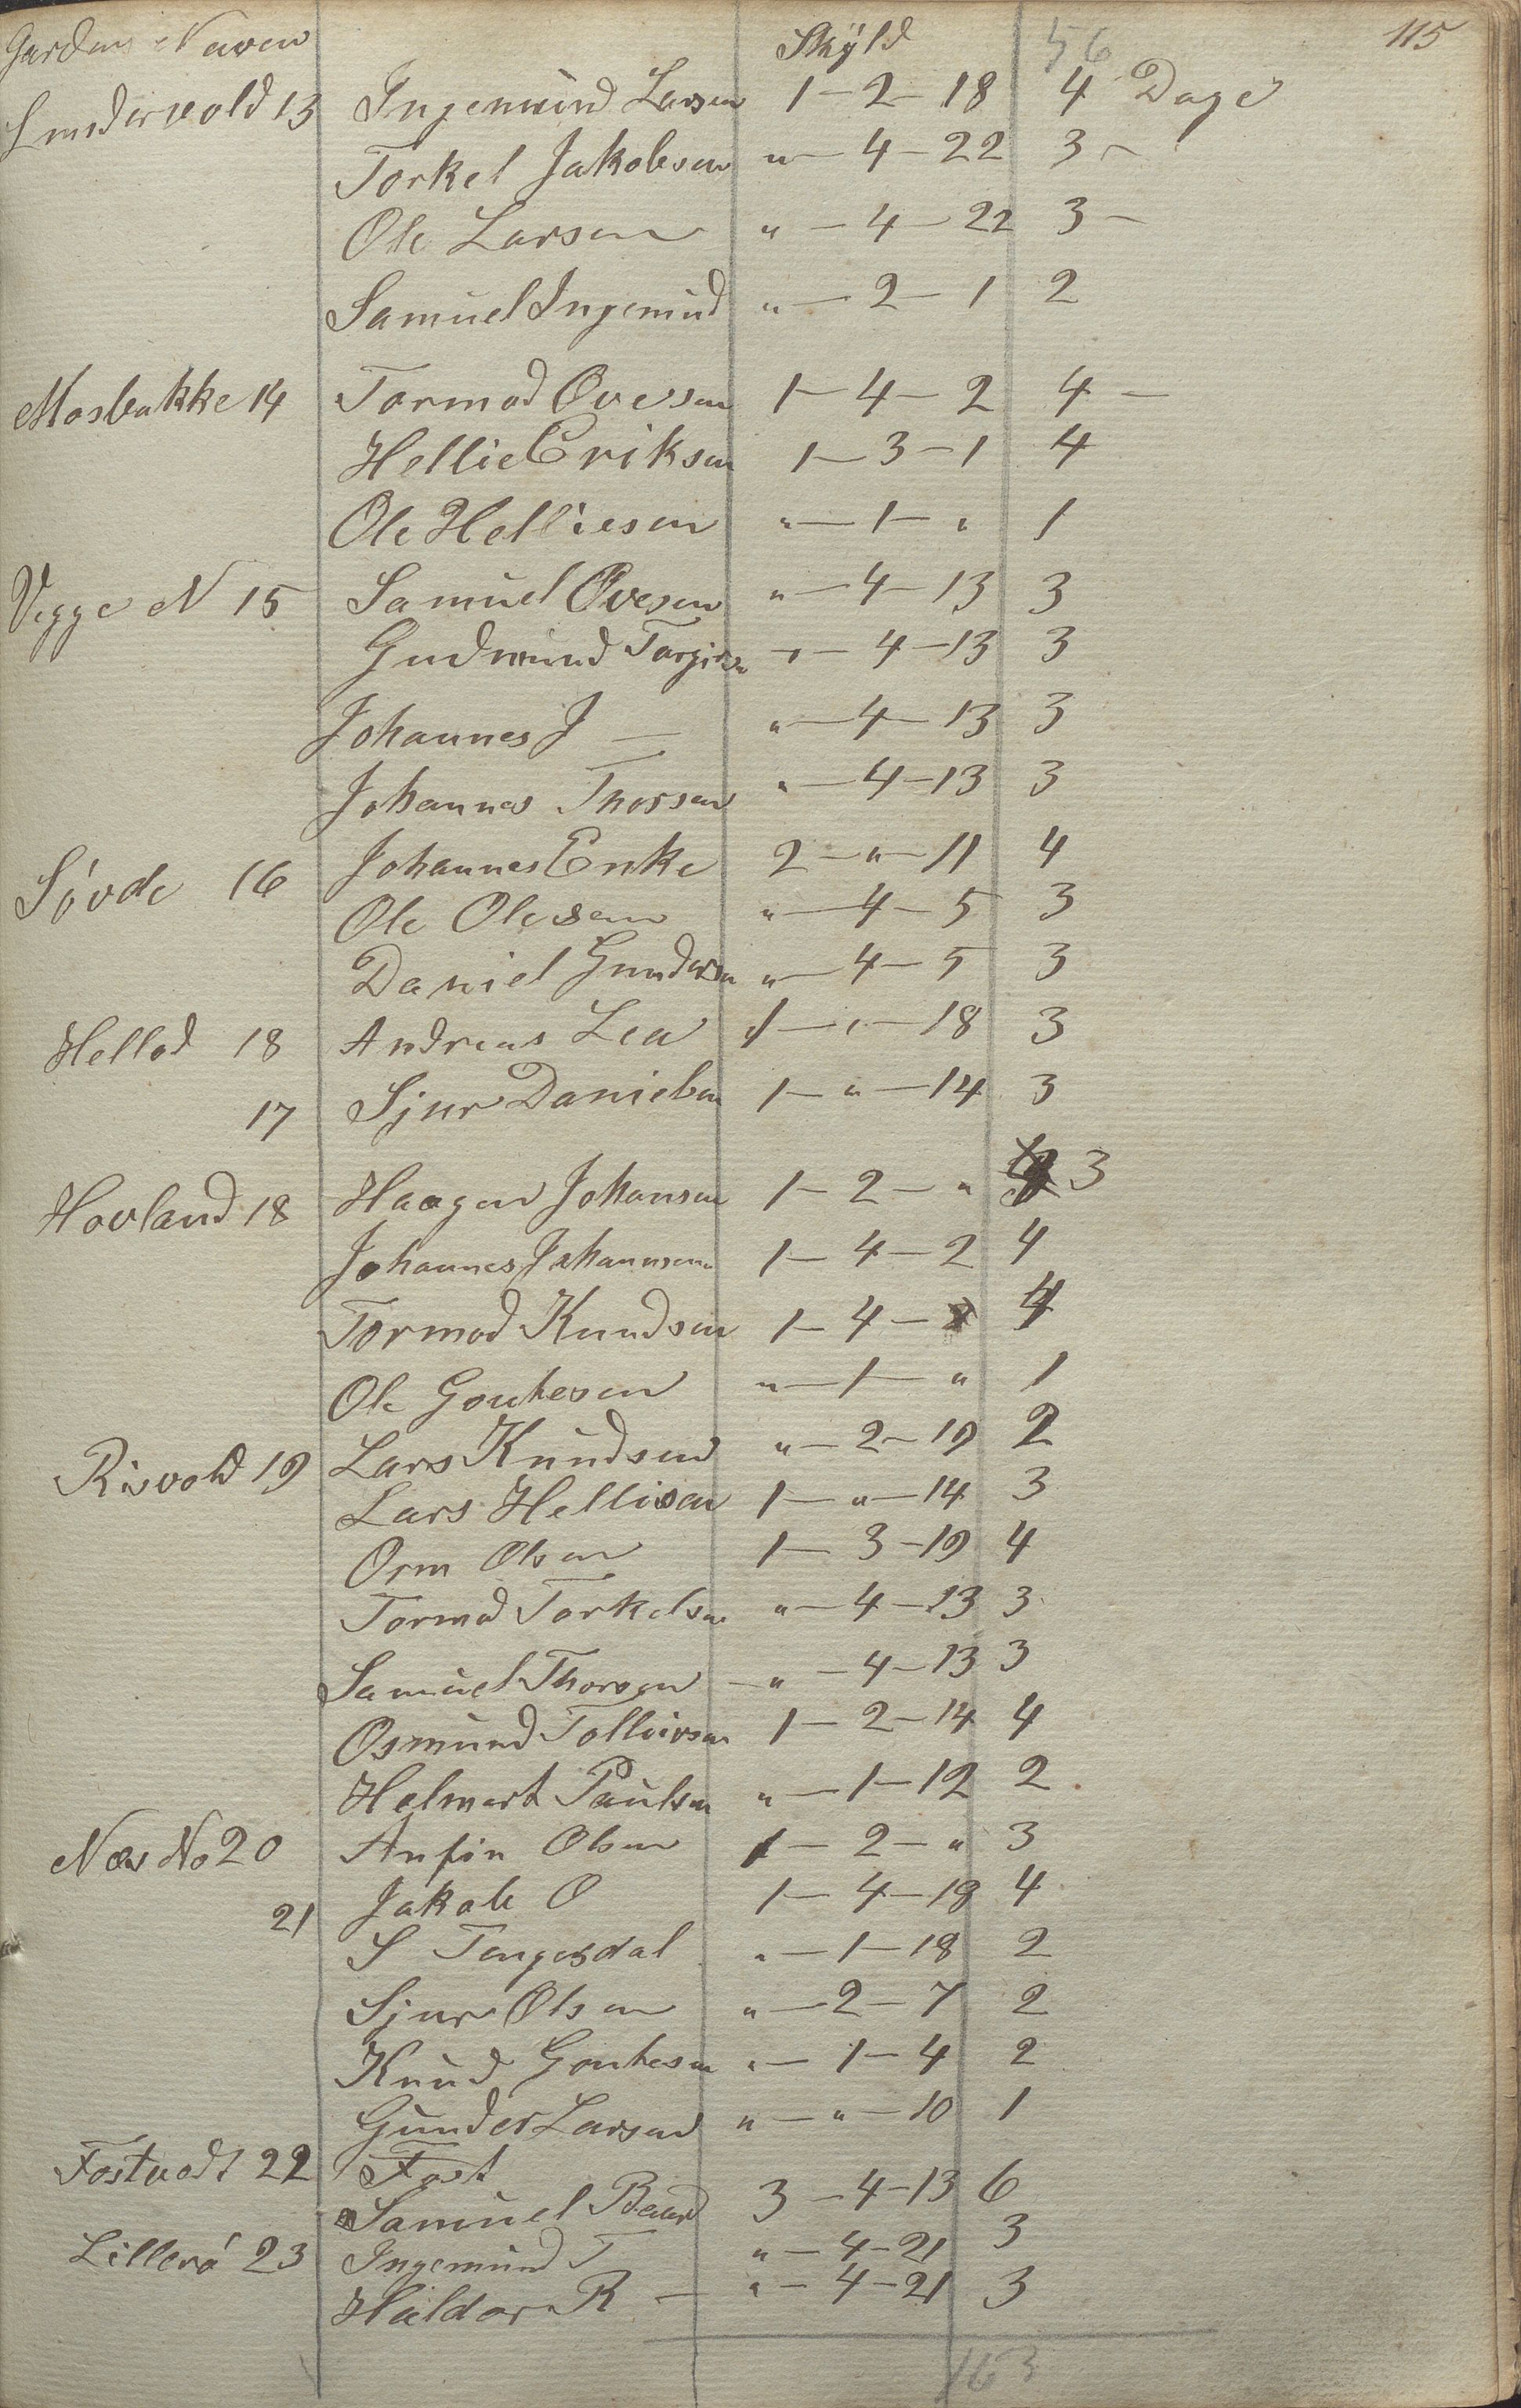 Gardens Navn Skyld 56 115
Lundervold 13 Ingemund Larsen 1 – 2 – 18 4 Dage
Torkel Jakobsen " – 4 – 22 3 –
Ole Larsen " – 4 – 22 3 –
Samuel Ingemund " – 2 – 1 2
Mosbakke 14 Tormod Ovesen 1 – 4 – 2 4 –
Hellie Eriksen 1 – 3 – 1 4
Ole Helliesen " – 1 – " 1
Vegge N 15 Samuel Ovesen " – 4 – 13 3
Gudmund Torgiersen " – 4 – 13 3
Johannes J – " – 4 – 13 3
Johannes Thorsen " – 4 – 13 3
Søvde 16 Johannes Enke 2 – " – 11 4
Ole Olesen " – 4 – 5 3
Daniel Gundersen " – 4 – 5 3
Hellod 18 Andreas Lea 1 – " – 18 3
17 Sjur Danielsen 1 – " – 14 3
Hovland 18 Haagen Johansen 1 – 2 – " 3
Johannes Johannesen 1 – 4 – 2 4
Tormod Knudsen 1 – 4 – 2 4
Ole Goutesen " – 1 – " 1
Risvold 19 Lars Knudsen " – 2 – 19 2
Lars Hellisen 1 – " – 14 3
Orm Olsen 1 – 3 – 19 4
Tormod Torkelsen " – 4 – 13 3
Samuel Thorsen " – 4 – 13 3
Osmund Tolleivsen 1 – 2 – 14 4
Helmert Paulsen " – 1 – 12 2
Næs No 20 Anfin Olsen 1 – 2 – " 3
21 Jakob O 1 – 4 – 18 4
S Tengesdal " – 1 – 18 2
Sjur Olsen " – 2 – 7 2
Knud Goutesen " – 1 – 4 2
Gunder Larsen " – " – 10 1
Fostvedt 22 Fost
Samuel Baard 3 – 4 – 13 6
Lillerø 23 Ingemund T " – 4 – 21 3
Haldor R – " – 4 – 21 3
163